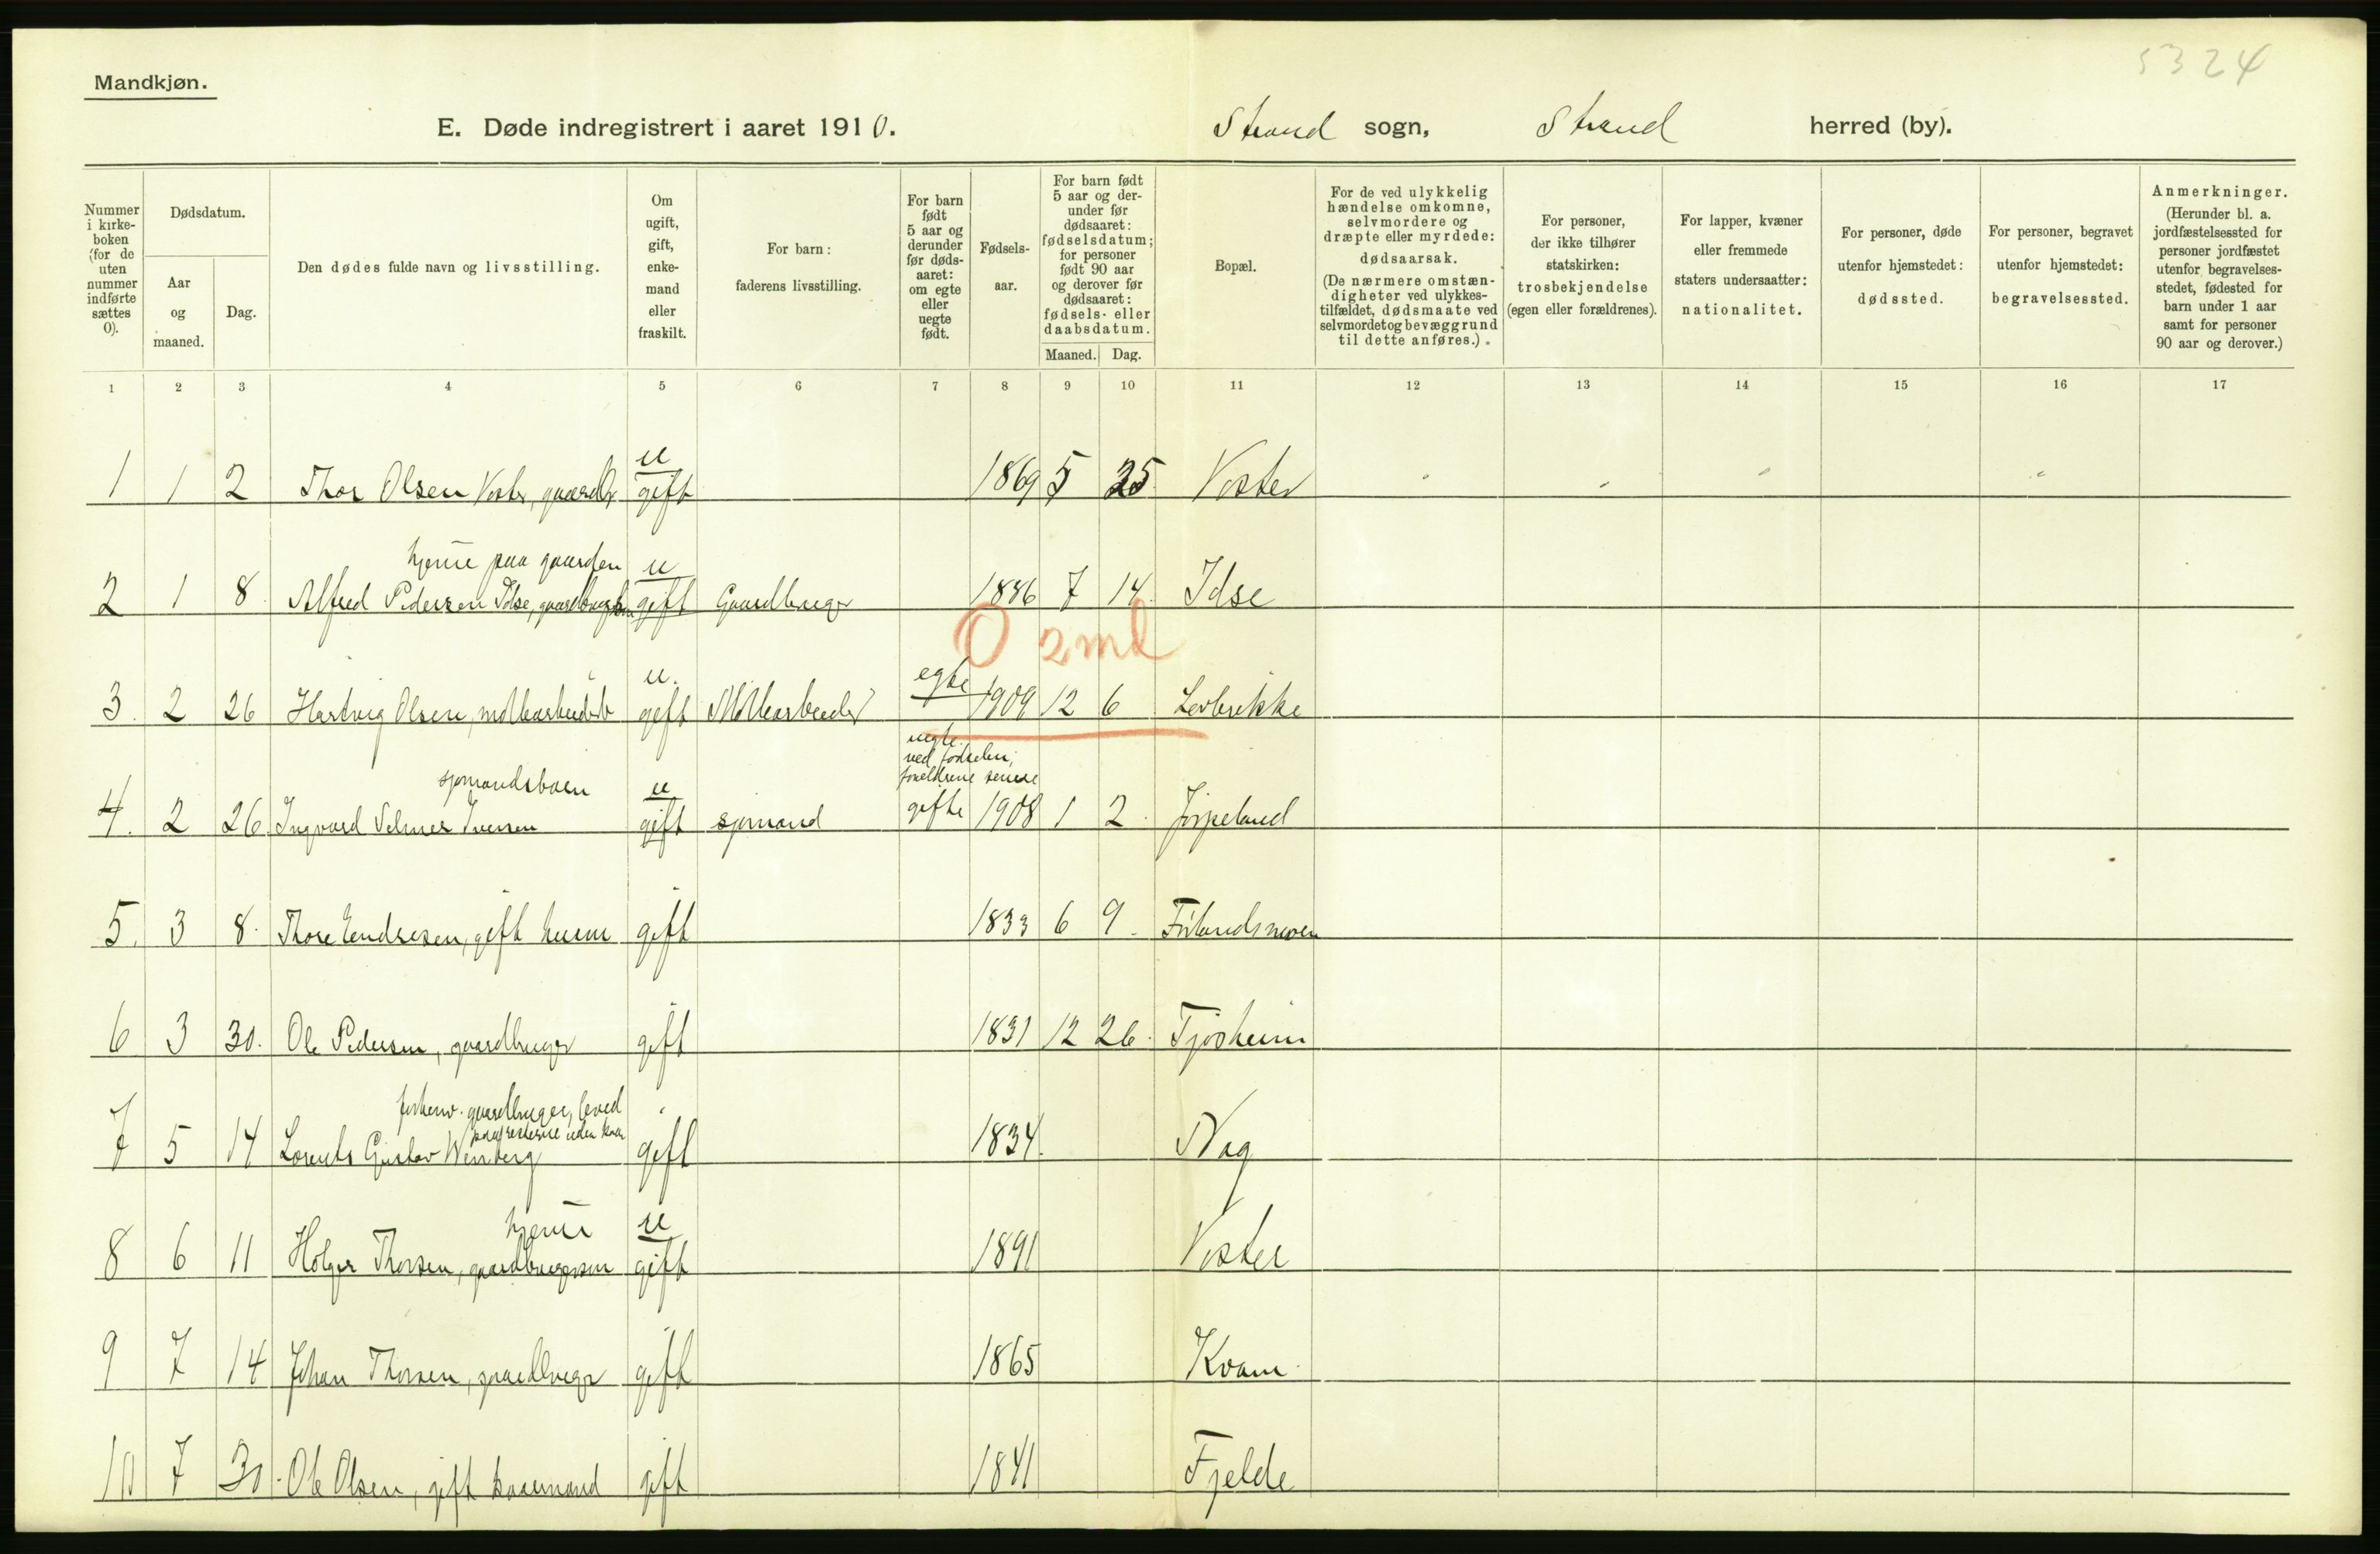 5324
Mandkjøn.
E. Døde indregistrert i aaret 1910. Strand sogn, Strand herred (by).
Nummer i kirke-boken (for de uten nummer indførte sættes 0).
Dødsdatum.
Aar og maaned.
Dag.
Den dødes fulde navn og livsstilling.
Om ugift, gift, enke-mand eller fraskilt.
For barn: faderens livsstilling.
For barn født 5 aar og derunder før døds-aaret: om egte eller uegte født.
Fødsels-aar.
For barn født 5 aar og der-under før dødsaaret: fødselsdatum; for personer født 90 aar og derover før dødsaaret: fødsels- eller daabsdatum.
Maaned.
Dag.
Bopæl.
For de ved ulykkelig hændelse omkomne, selvmordere og dræpte eller myrdede: dødsaarsak. (De nærmere omstæn-digheter ved ulykkes-tilfældet, dødsmaate ved selvmord et og bevæggrund til dette anføres.)
For personer, der ikke tilhører statskirken: trosbekjendelse (egen eller forældrenes).
For lapper, kvæner eller fremmede staters undersaatter: nationalitet.
For personer, døde utenfor hjemstedet: dødssted.
For personer, begravet utenfor hjemstedet: begravelsessted.
Anmerkninger. (Herunder bl. a. jordfæstelsessted for personer jordfæstet utenfor begravelses-stedet, fødested for barn under 1 aar samt for personer 90 aar og derover.)
1 2 3 4 5 6 7 8 9 10 11 12 13 14 15 16 17
u
1 1 2 Thor Olsen Voster, gaardbr. gift 1869 5 25 Voster
hjemme paa gaarden u
2 1 8 Alfred Pedersen Idse, gaardbrugersøn gift Gaardbruger 1886 7 14 Idse
0 2 md
u. egte
3. 2 26 Hartvig Olsen, møllearbeider gift Møllearbeider 1909 12 6
uegte ved fødselen, forældrene senere
sjømandsbarn u
4. 2 26 Ingvard Velmer Iversen gift sjømand gifte 1908 1 2 Jørpeland
5. 3 8. Thore Endresen, gift husm gift 1833 6 9.
6 3 30. Ole Pedersen, gaardbruger gift 1831 12 26. Tjøsheim
forhenv. gaardbruger, leved
7 5 14 Lorents Gustav Wenberg gift 1834. Nag
hjemme u
8 6 11 Holger Thorsen, gaardbrugersøn gift 1891 Voster
9 7 14 Johan Thorsen, gaardbruger gift 1865 Kvam
10 7 30. Ole Olsen, gift kaarmand gift 1841 Fjelde